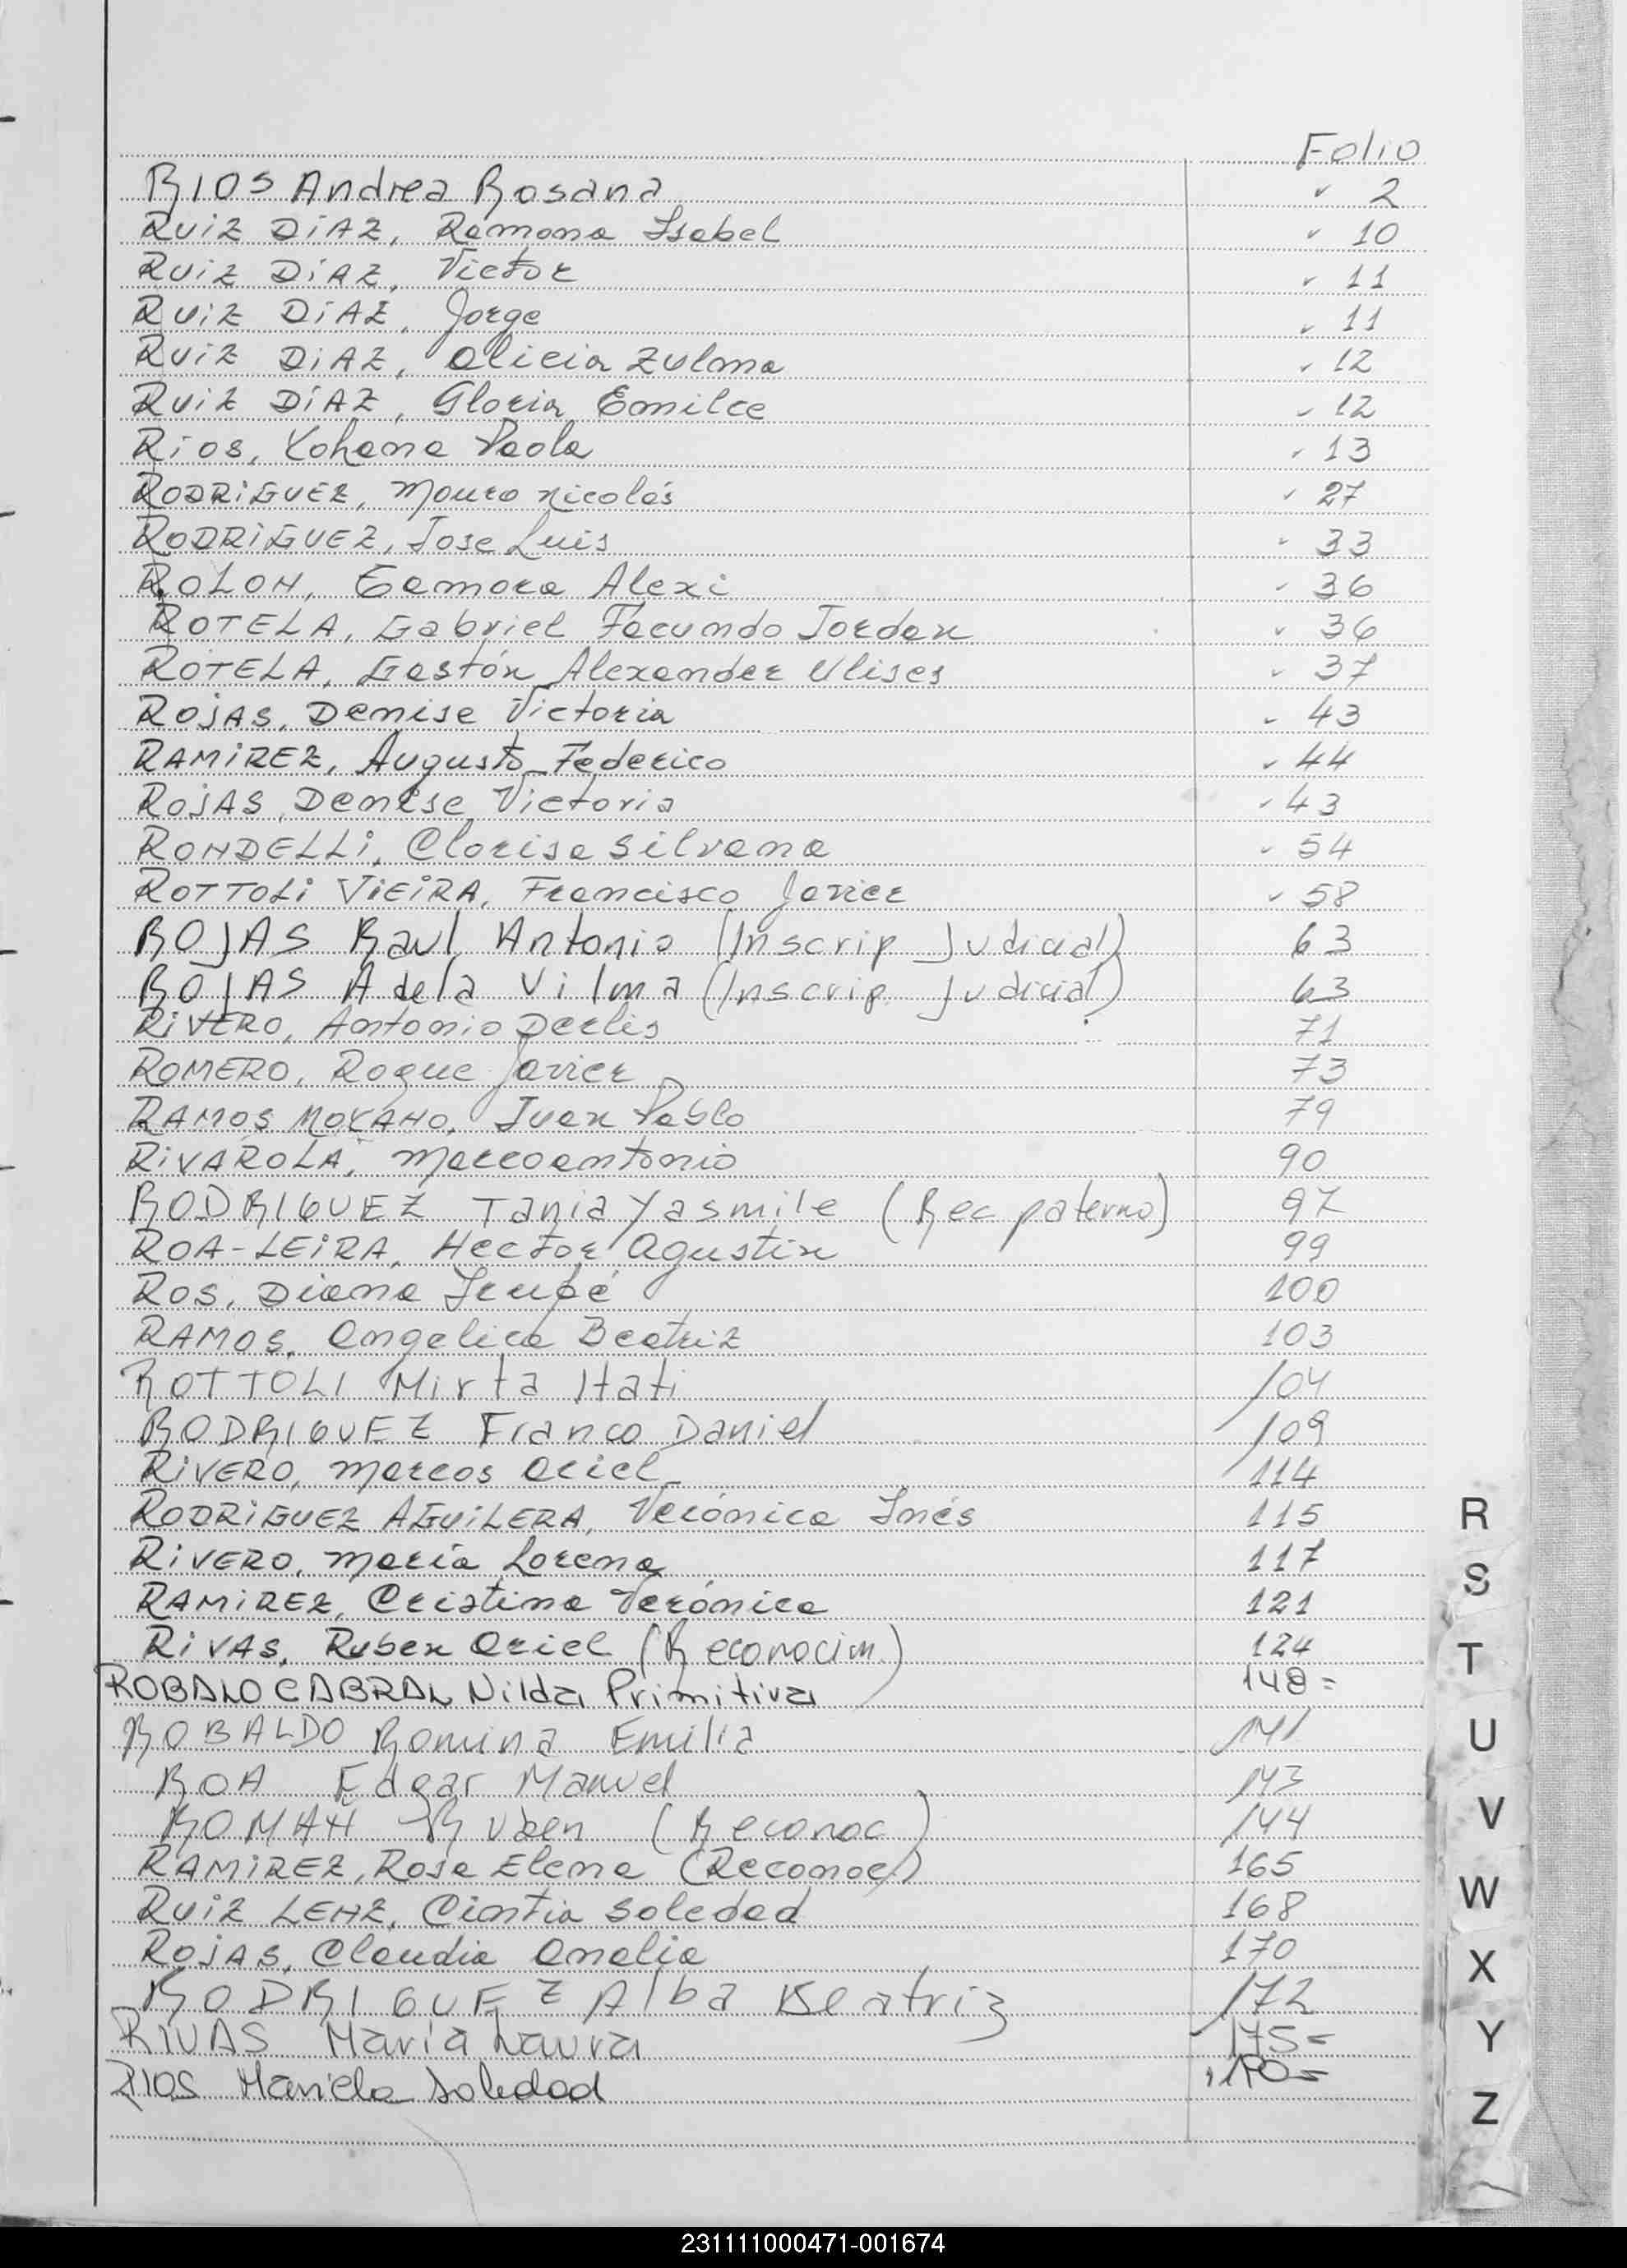 Folio
RIOS Andrea Rosana ✓ 2
RUIZ DIAZ, Ramona Isabel ✓ 10
RUIZ DIAZ, Victor ✓ 11
RUIZ DIAZ, Jorge ✓ 11
RUIZ DIAZ, Alicia Zulma ✓ 12
RUIZ DIAZ, Gloria Emilce ✓ 12
Rios, Yohana Paola ✓ 13
RODRIGUEZ, Mauro Nicolás ✓ 27
RODRIGUEZ, Jose Luis ✓ 33
ROLON, Gamora Alexi ✓ 36
ROTELA, Gabriel Facundo Jordan ✓ 36
ROTELA, Gastón Alexander Ulises ✓ 37
ROJAS, Denise Victoria ✓ 43
RAMIREZ, Augusto Federico ✓ 44
ROJAS, Denise Victoria ✓ 43
RONDELLI, Clorisa Silvana ✓ 54
ROTTOLI VIEIRA, Francisco Javier ✓ 58
ROJAS Raul Antonio (Inscrip Judicial) 63
ROJAS Adela Vilma (Inscrip. Judicial) 63
RIVERO, Antonio Derlis 71
ROMERO, Roque Javier 73
RAMOS MOYANO, Juan Pablo 79
RIVAROLA, Marcoantonio 90
RODRIGUEZ Tania Yasmile (Rec paterno) 97
ROA-LEIRA, Hector Agustin 99
ROS, Diana Irupé 100
RAMOS, Angelica Beatriz 103
ROTTOLI Mirta Itati 104
RODRIGUEZ Franco Daniel 109
RIVERO, Marcos Ariel 114
RODRIGUEZ AGUILERA, Verónica Inés 115
RIVERO, María Lorena 117
RAMIREZ, Cristina Verónica 121
RIVAS, Ruben Ariel (Reconocim.) 124
ROBALO CABRAL Nilda Primitiva 148=
ROBALDO Romina Emilia 141
ROA Edgar Manuel 143
ROMAN Ruben (Reconoc) 144
RAMIREZ, Rosa Elena (Reconoc) 165
RUIZ LENZ, Cintia Soledad 168
ROJAS, Claudia Analia 170
RODRIGUEZ Alba Beatriz 172
RIVAS María Laura 175=
RIOS Mariela Soledad
R
S
T
U
V
W
X
Y
Z
231111000471-001674